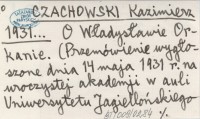 CZACHOWSKI Kazimierz
1931... O Władysławie Or-
kanie. (Przemówienie wygło-
szone dnia 14 maja 1931 r. na
uroczystej akademji w auli
Uniwersytetu Jagiellońskiego